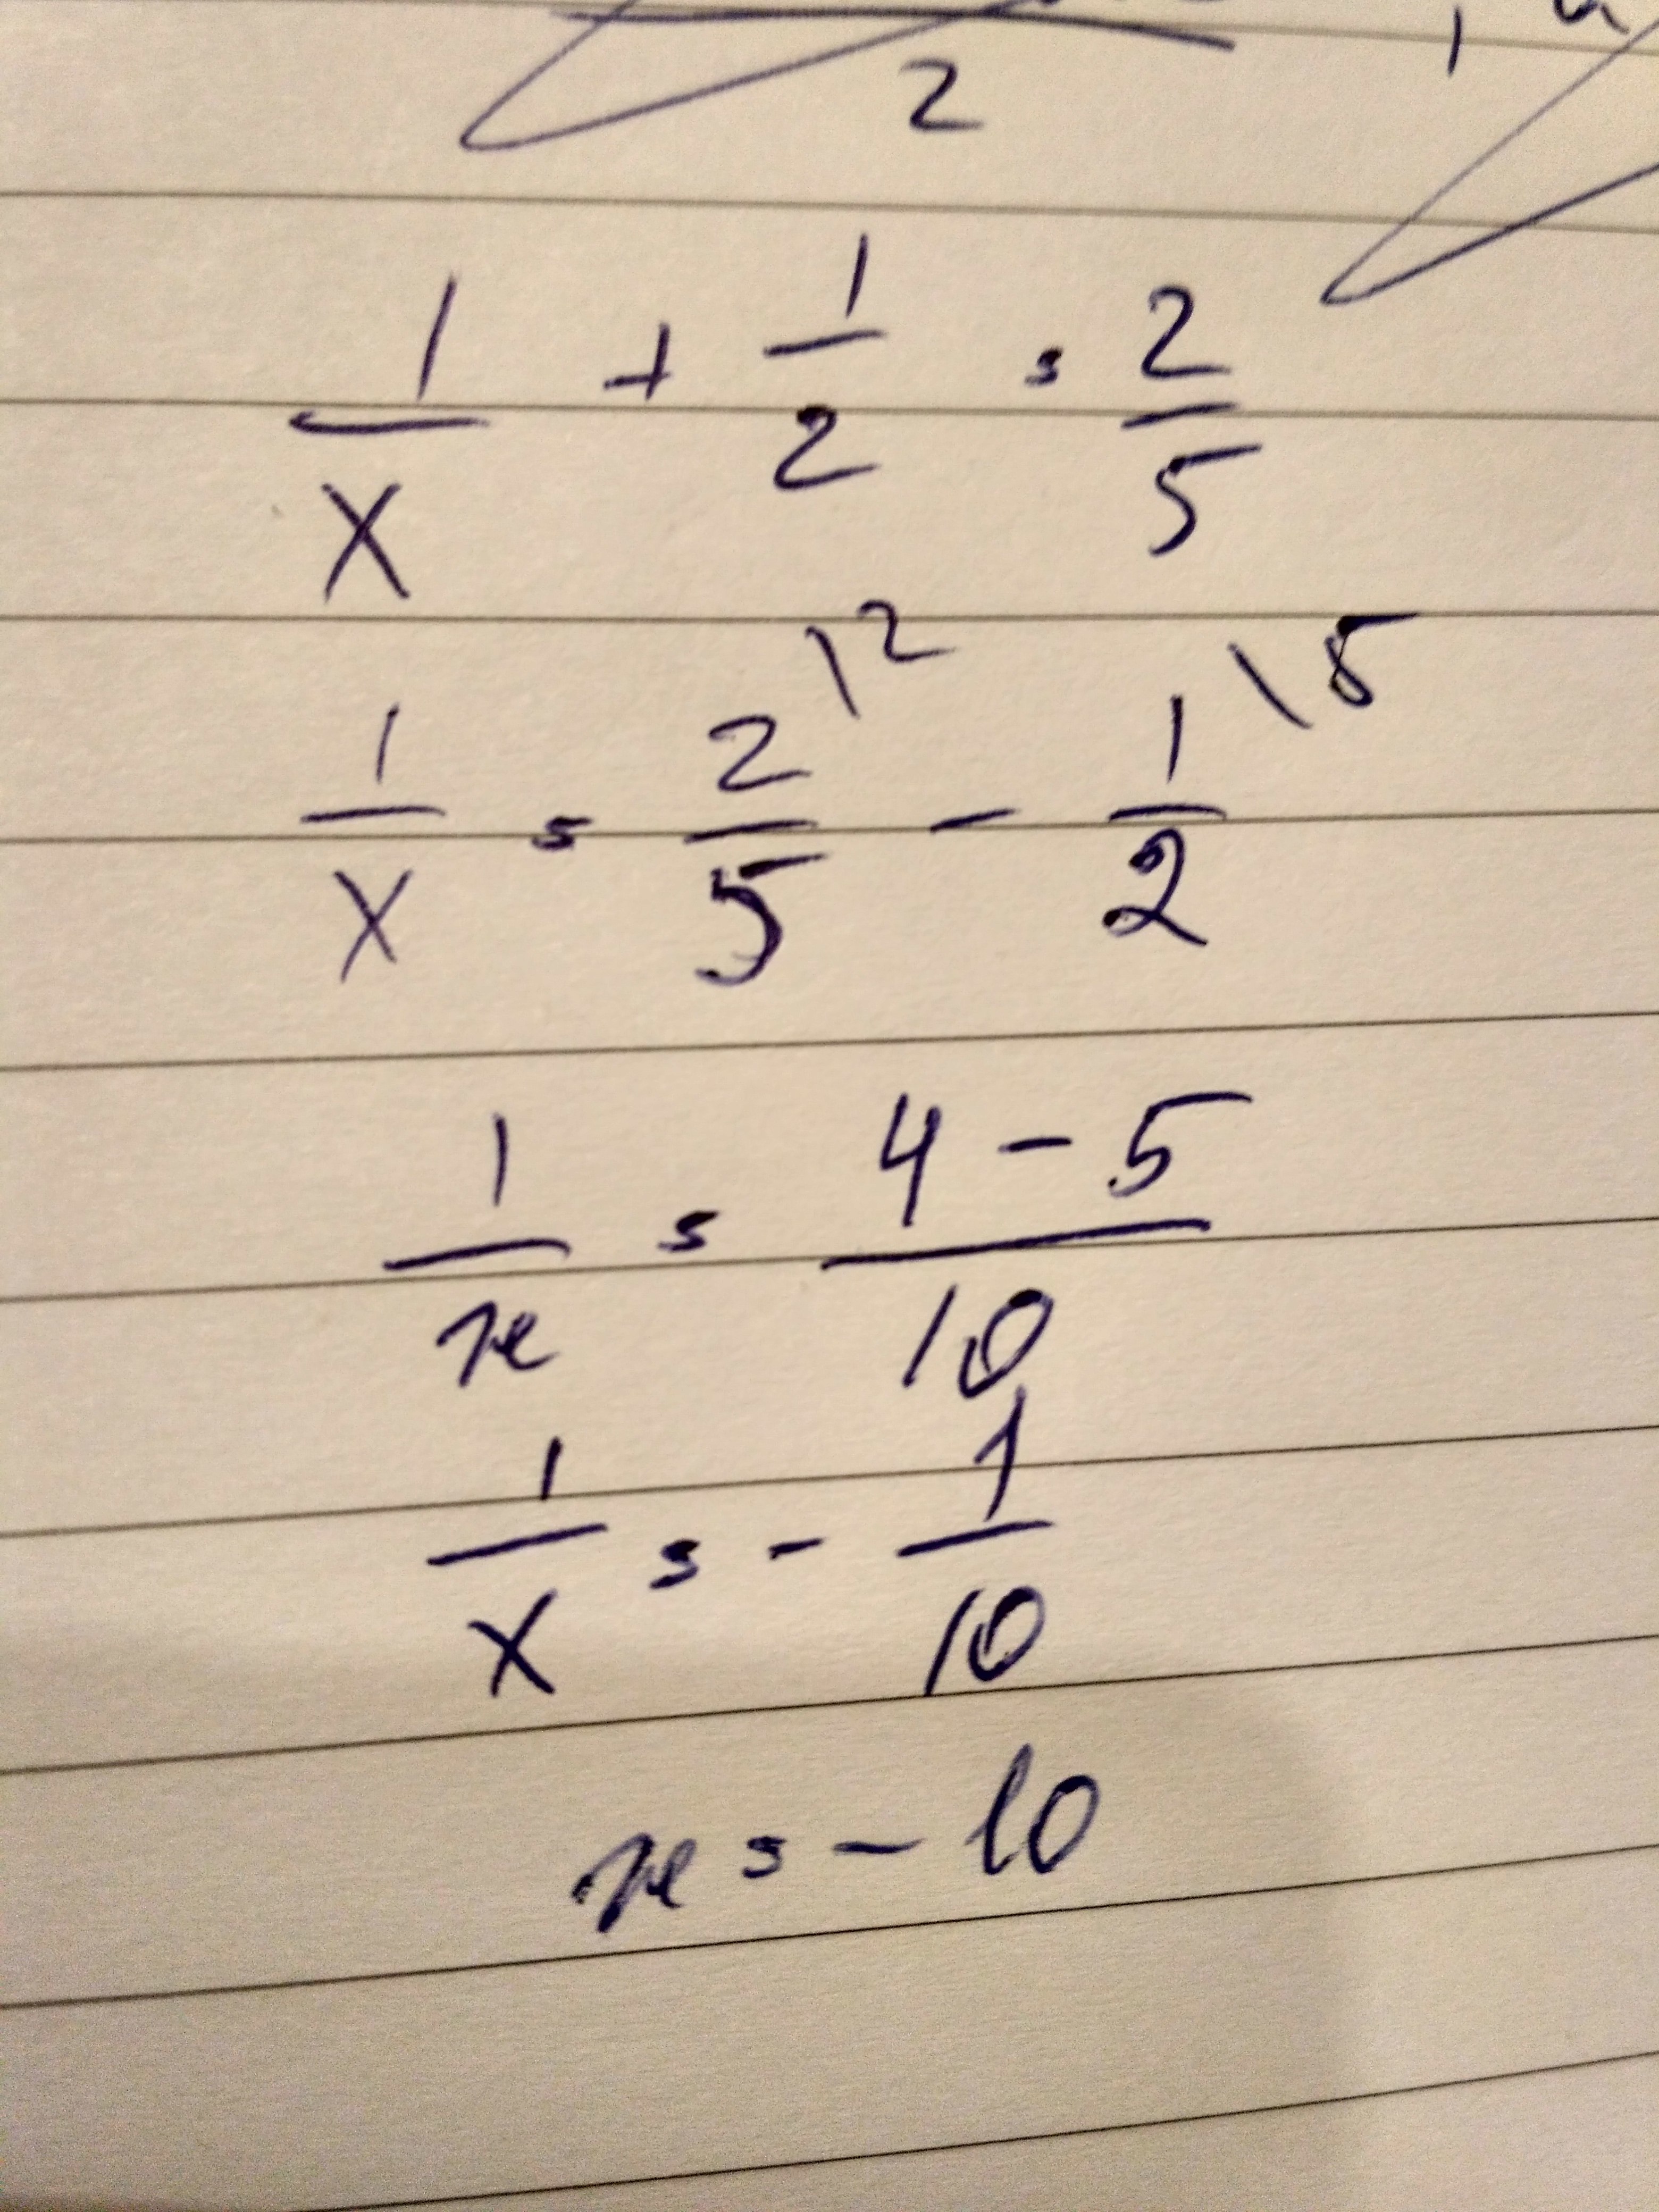 2
1/x + 1/2 = 2/5
1/x = 2/5 \2 - 1/2 \5
1/x = (4 - 5)/10
1/x = - 1/10
x = - 10